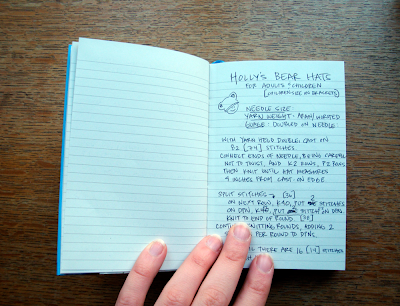 HOLLY'S BEAR HATS
FOR ADULTS + CHILDREN
[CHILDREN SIZE IN BRACKETS]
NEEDLE SIZE
YARN WEIGHT: ARAN/WORSTED
GUAGE: DOUBLED ON NEEDLE
WITH YARN HELD DOUBLE, CAST ON
82 [74] STITCHES
CONNECT ENDS OF NEEDLE, BEING CAREFUL
NOT TO TWIST, AND K2 ROWS, P2 ROWS
THEN KNIT UNTIL HAT MEASURES
INCHES FROM CAST ON EDGE.
SPLIT STITCHES
ON NEXT ROW, K40, PUT 2 STITCHES
ON DPN, K40, PUT STITCH ON DPN
KNIT TO END OF ROUND
KNITTING ROUNDS, ADDING 2
PER ROUND TO DPNS
THERE ARE 16 [14] STITCHES